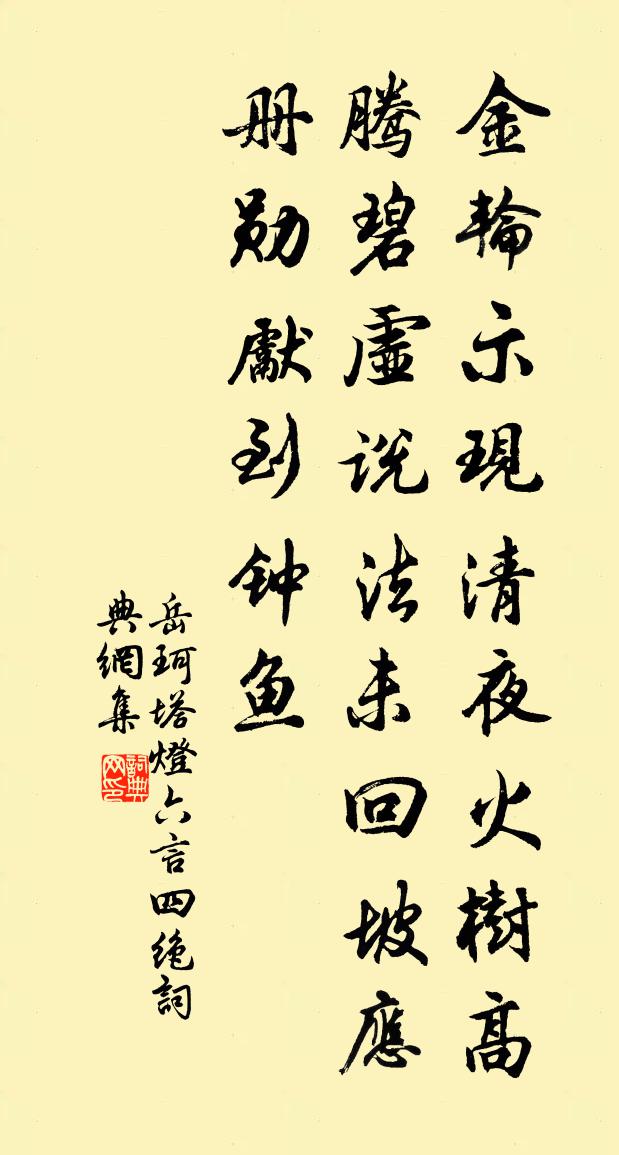 金輪示現清夜火樹高
騰碧虛説法未回坡應
册勋獻到钟鱼
岳珂塔燈六言四绝詞
典網集
詞典
网印